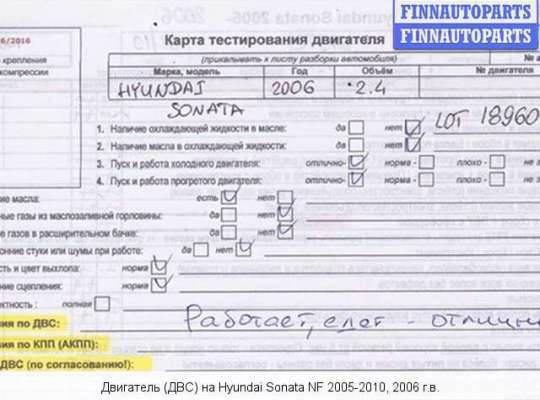 FINNAUTOPARTS
FINNAUTOPARTS
6/2016
Карта тестирования двигателя
крепления
(прикалывать к листу разборки автомобиля)
№ а
компрессии
Марка, модель
Год
Объём
№ двигателя
HYUNDAI
2006
2.4
SONATA
LOT 18960
1. Наличие охлаждающей жидкости в масле: да нет
2. Наличие масла в охлаждающей жидкости: да нет
3. Пуск и работа холодного двигателя: отлично- норма - плохо - не з
4. Пуск и работа прогретого двигателя: отлично- норма - плохо - не з
ние масла: есть нет
ные газы из маслозаливной горловины: да нет
е газов в расширительном бачке: да нет
онние стуки или шумы при работе: да нет
сть и цвет выхлопа: норма
ние сцепления: норма
ектность : полная
ния по ДВС: Работает, едет - отличн
ия по КПП (АКПП):
ДВС (по согласованию!):
Двигатель (ДВС) на Hyundai Sonata NF 2005-2010, 2006 г.в.